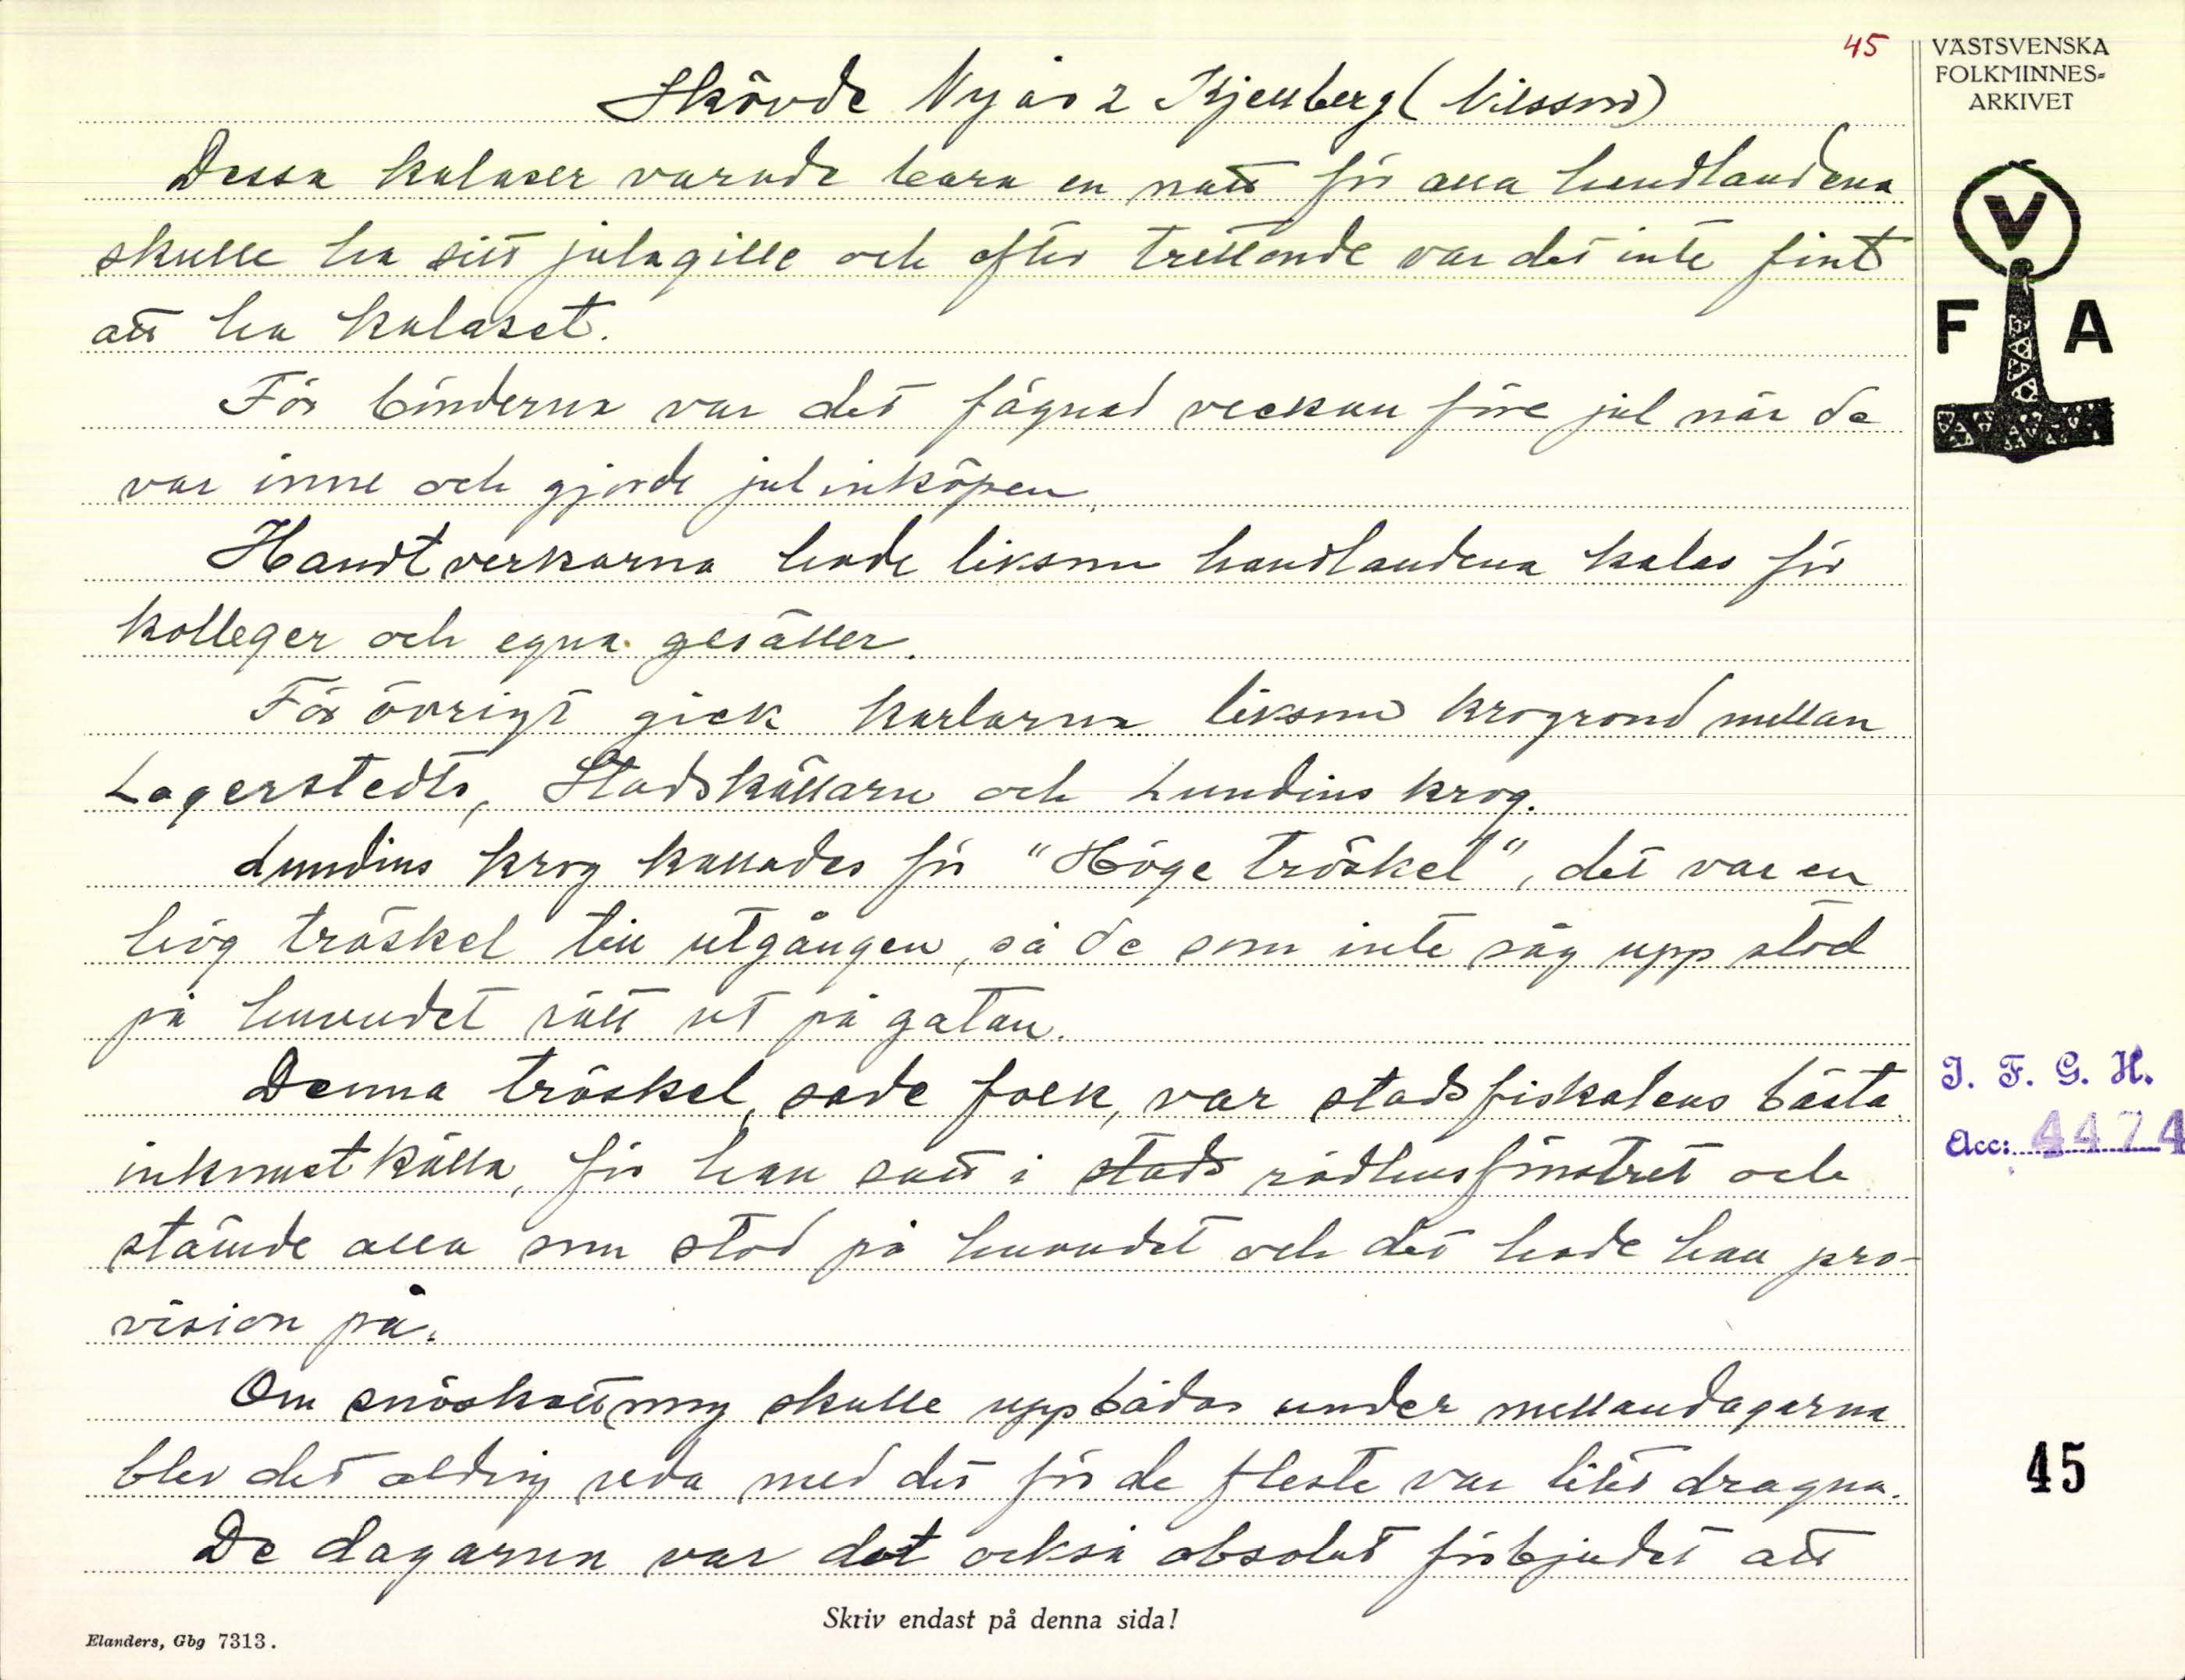 45
Skövde Nyår 2 Kjellberg (Nilsson)
Dessa kalaser varade bara en natt för alla handlandena
skulle ha sitt julagille och efter trettonde var det inte fint
att ha kalaset.
För bönderna var det fägnad veckan före jul när de
var inne och gjorde julinköpen.
Handtverkarna hade liksom handlandena kalas för
kolleger och egna gesäller.
För övrigt gick karlarna liksom krogrond mellan
Lagerstedts, Stadskällarn och Lundins krog.
Lundins krog kallades för "Höge tröskel", det var en
hög tröskel till utgången, så de som inte såg upp stod
på huvudet rätt ut på gatan.
Denna tröskel, sade folk, var stadsfiskalens bästa
inkomstkälla, för han satt i stads rådhusfönstret och
stämde alla som stod på huvudet och det hade han pro-
vision på.
Om snöskottning skulle uppbådas under mellandagarna
blev det aldrig reda med det för de fleste var litet dragna.
De dagarna var det också absolut förbjudet att
Skriv endast på denna sida!
Elanders, Gbg 7313.
VÄSTSVENSKA
FOLKMINNES-
ARKIVET
V
F A
I. F. G. H.
Acc: 4474
45